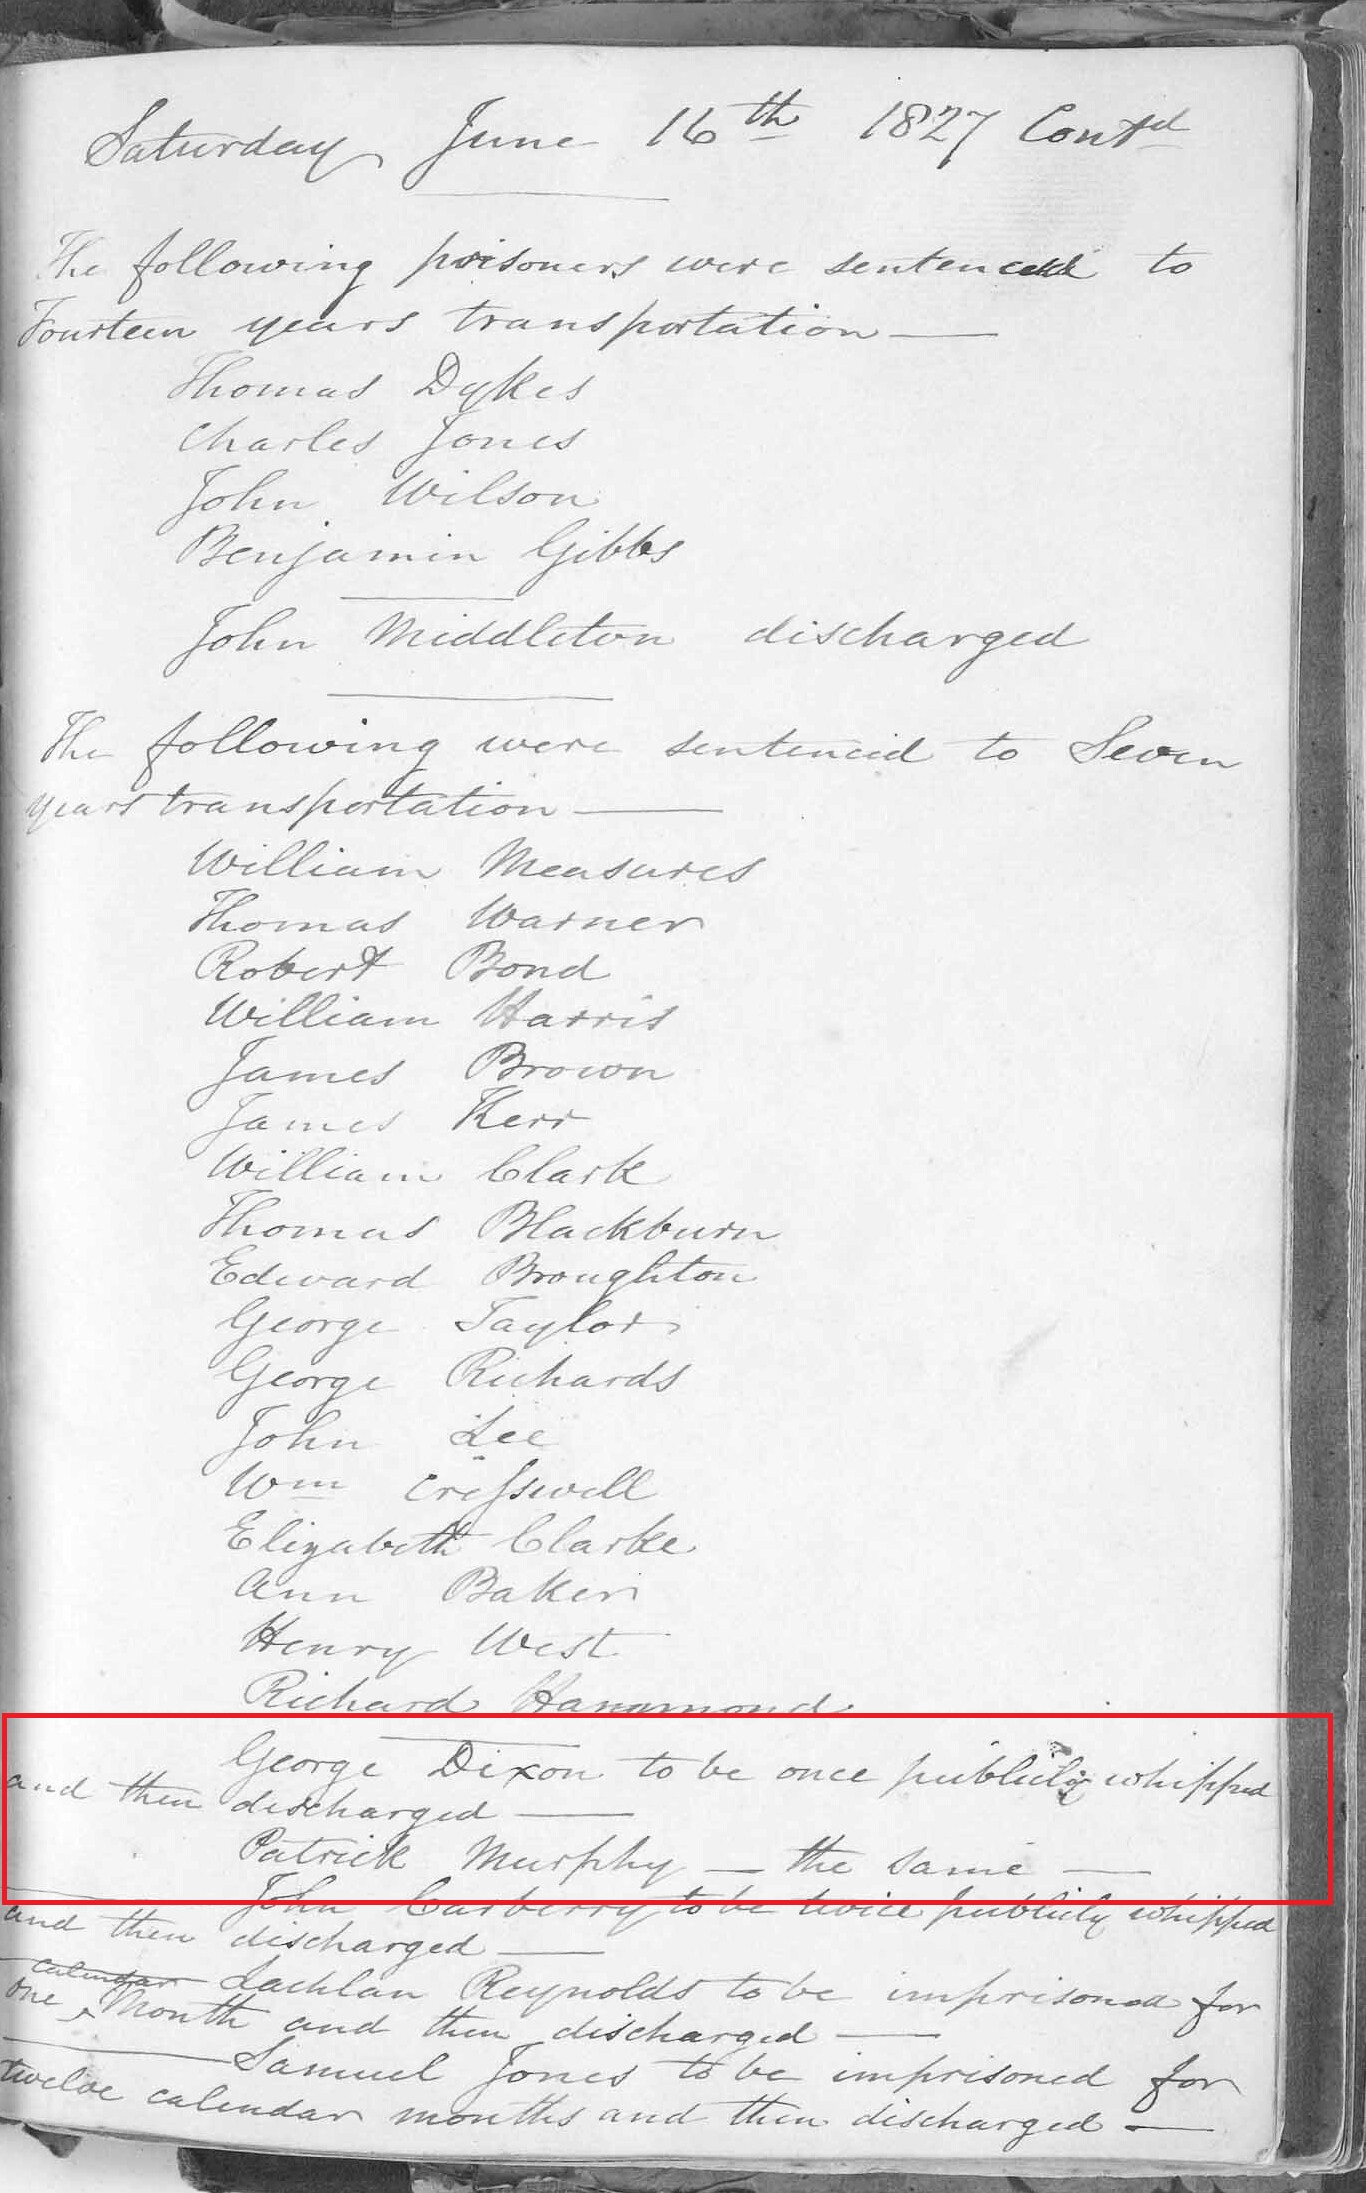 Saturday June 16th 1827 Contd
The following prisoners were sentenced to
Fourteen years transportation —
Thomas Dykes
Charles Jones
John Wilson
Benjamin Gibbs
John Middleton discharged
The following were sentenced to Seven
years transportation —
William Measures
Thomas Warner
Robert Bond
William Harris
James Brown
James Kerr
William Clark
Thomas Blackburn
Edward Broughton
George Taylor
George Richards
John Lee
Wm Cresswell
Elizabeth Clarke
Ann Baker
Henry West
Richard Hammond
George Dixon to be once publicly whipped
and then discharged —
Patrick Murphy — the same —
John Carberry to be twice publicly whipped
and then discharged —
calendar Lachlan Reynolds to be imprisoned for
one month and then discharged —
Samuel Jones to be imprisoned for
twelve calendar months and then discharged —